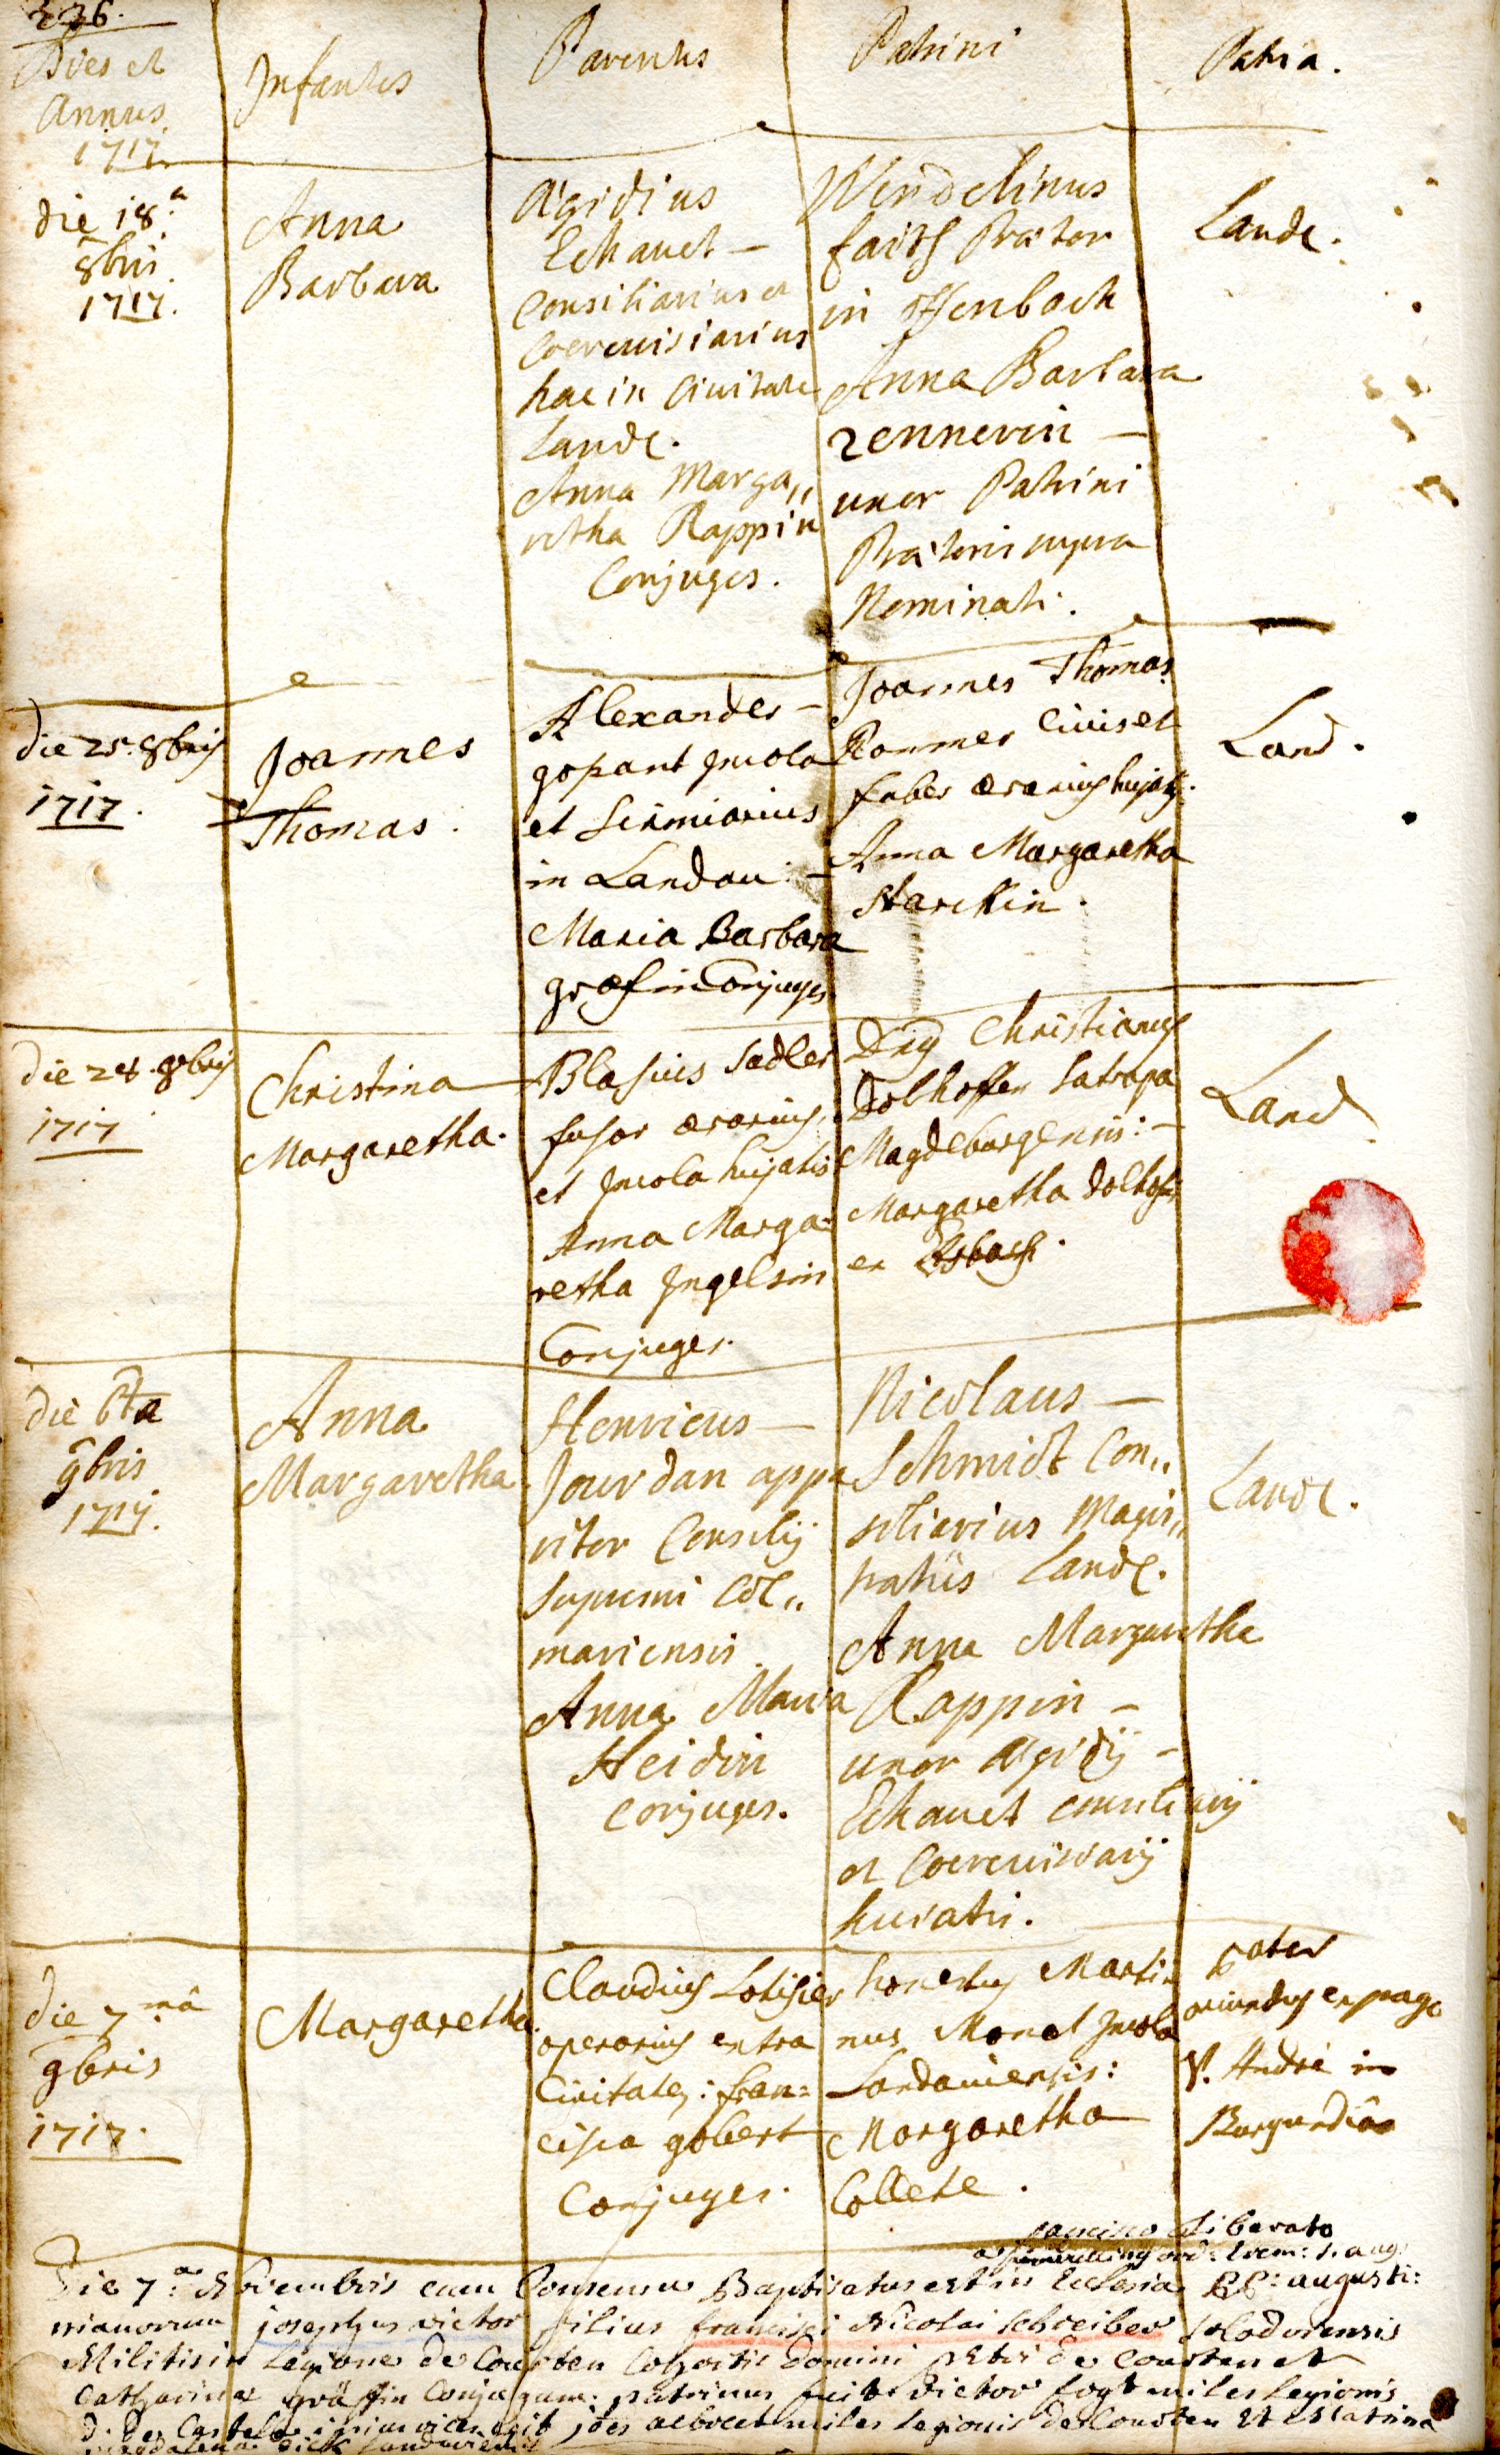 226.
Dies et
Annus
1717.
Infantes
Parentes
Patrini
Patria.
die 18.a
8bris
1717.
Anna
Barbara
Ægidius
Eckanet —
Consiliarius et
Cocervisiarius
hac in Civitate
Land.
Anna Marga„
retha Rappin
Conjuges.
Wendelinus
faith Prætor
in Offenbach
Anna Barbara
rennerin —
uxor Patrini
Prætoris supra
Nominati.
Land.
die 25. 8bris
1717.
Joannes
Thomas.
Alexander —
gopant Incola
et
in Landau. —
Maria Barbara
græfin Conjuges.
Joannes Thomas
Rommer Civis et
faber ærarius hujas.
Anna Margaretha
Starckin.
Land.
die 28. 8bris
1717
Christina
Margaretha.
Blasius Sadler
fusor ærarius,
et Incola hujatis
Anna Marga=
retha Ingelsin
Conjuges.
Dnus Christianus
Dolhoffen Satrapa
Magdeburgensis: —
Margaretha Dolhoffin
ex
Land
die 6ta
9bris
1717.
Anna
Margaretha
Henricus —
Jourdan appa
ritor Consilij
Supremi Col„
mariensis.
Anna Maria
Heidin
Conjuges.
Nicolaus —
Schmidt Con„
siliarius Magis„
tratus Land.
Anna Margaretha
Rappin —
uxor Ægidij —
Eckanet consiliarij
et Cocervisiarij
huiatis.
Land.
die 7mâ
9bris
1717.
Margaretha
Claudius Lotisier
operarius extra
Civitatem: fran=
cisca gobert
Conjuges.
honestus Marti=
nus Monet Incola
Landaviensis:
Margaretha
Collete.
pater
oriundus ex pago
St. André in
Burgundiâ
Liberato
ord: Erem: S. Aug:
Die 7.a Novembris cum Consensu Baptisatus est in Ecclesia RR: augusti:
nianorum josephus victor filius francisci Nicolai Schreiber Solodorensis
Militis in Legione de Courten Cohortis domini petri de Courten et
Catharinæ gräffin Conjugum: patrinus fuit victor fogt miles legionis
d: de Castela
miles legionis de Courten et Matrina
Magdalena